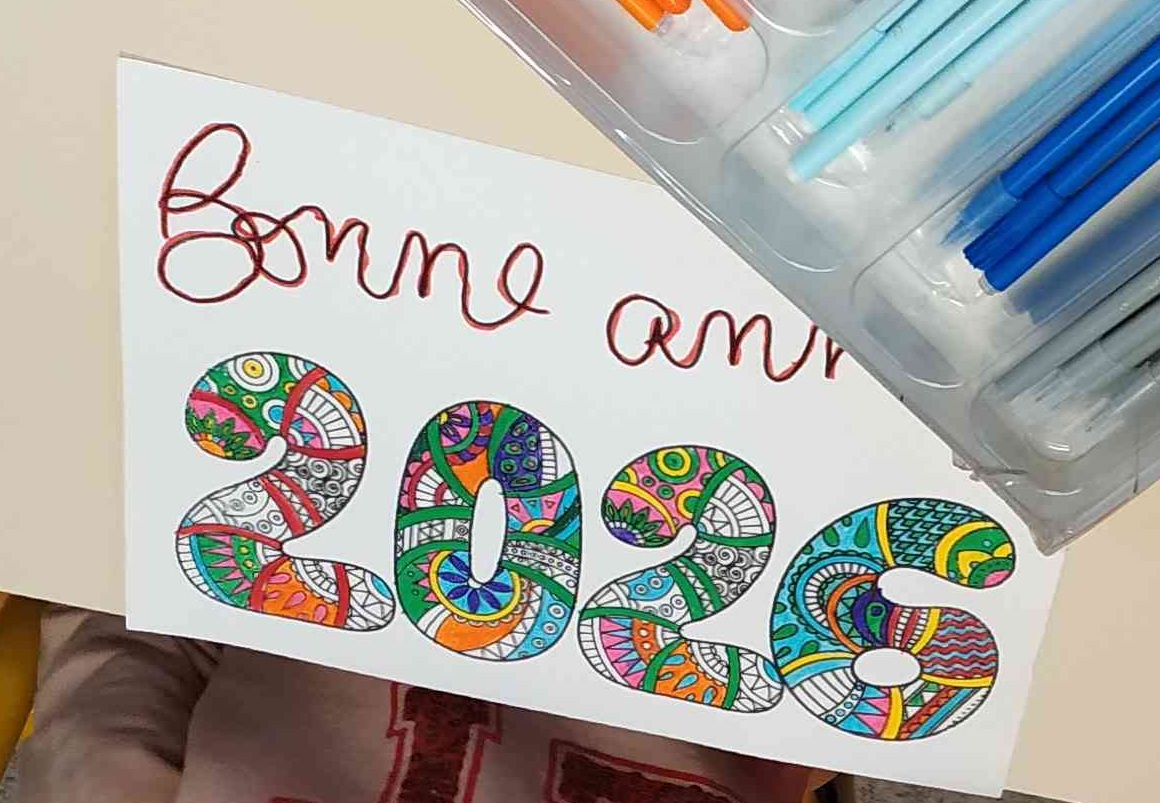 Bonne ann
2026